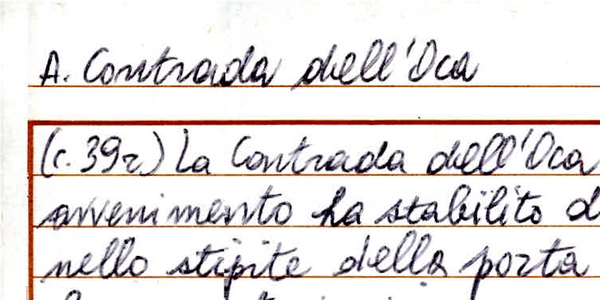 A. Contrada dell'Oca
(c. 39r) La Contrada dell'Oca
avvenimento ha stabilito d
nello stipite della porta